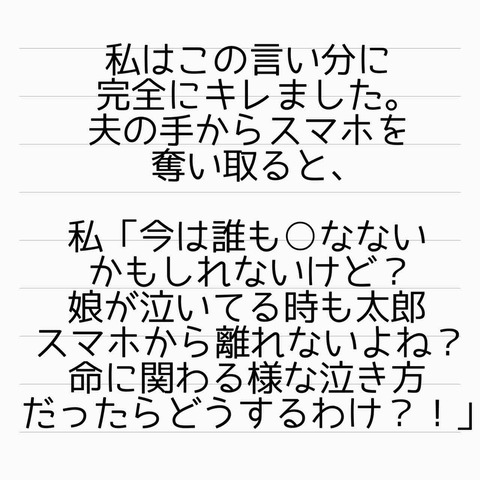 私はこの言い分に
完全にキレました。
夫の手からスマホを
奪い取ると、
私「今は誰も○なない
かもしれないけど？
娘が泣いてる時も太郎
スマホから離れないよね？
命に関わる様な泣き方
だったらどうするわけ？！」